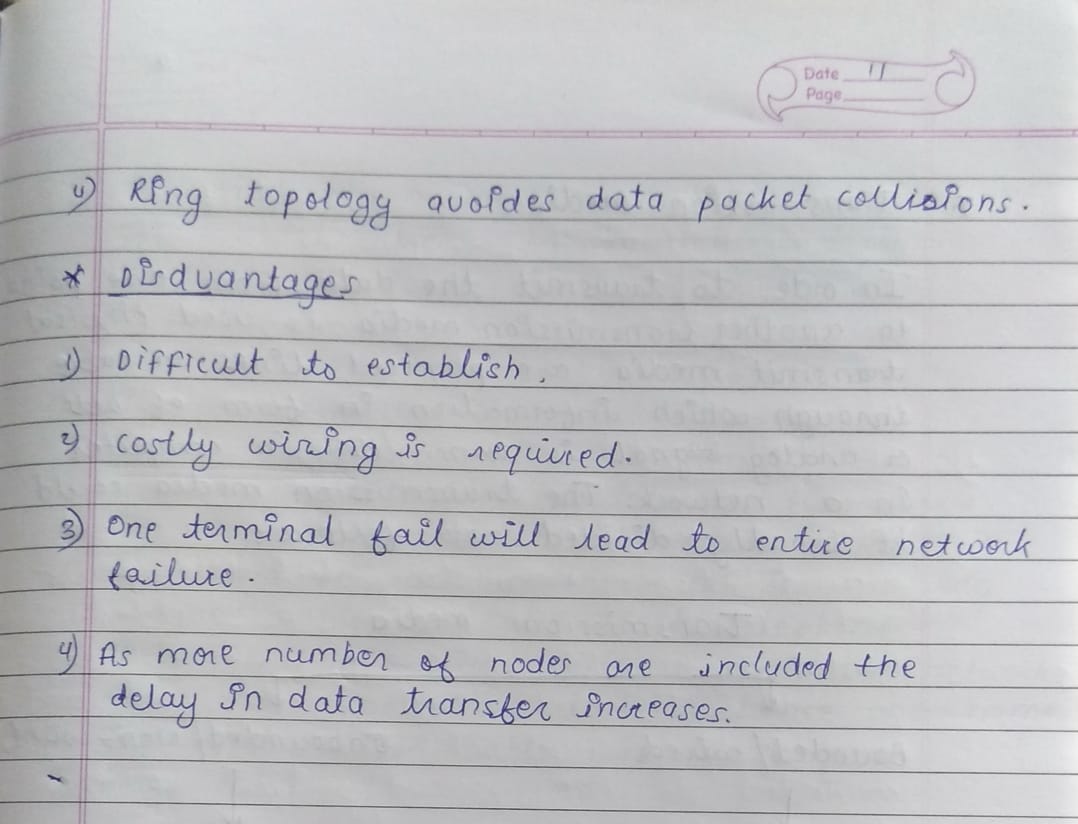 Date 11
Page
4) Ring topology avoides data packet collisions.
* Disdvantages
1) Difficult to establish.
2) costly wiring is required.
3) One terminal fail will lead to entire network
failure.
4) As more number of nodes are included the
delay in data transfer increases.